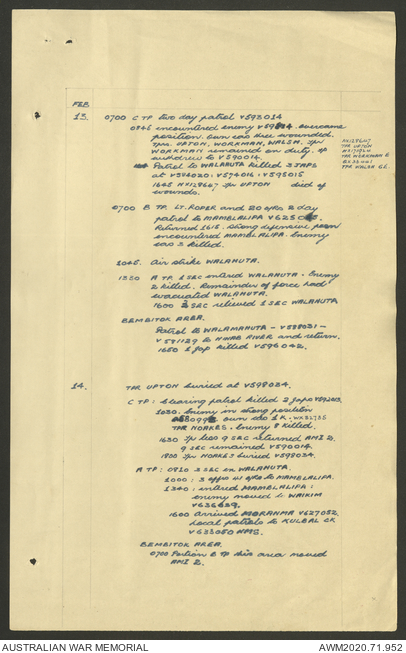 FEB
13. 0700 C TP two day patrol V593014
0845 encountered enemy V59 overcame
position. Own cas three wounded.
Tprs. UPTON, WORKMAN, WALSH. Tpr
WORKMAN remained on duty. Tp
withdrew to V590014.
Patrol to WALAHUTA killed 3 JAPS
at V574016 V595015
1645 NX129607 Tpr UPTON died of
wounds.
NX129607
TPR UPTON
TPR WORKMAN E
TPR WALSH G.E.
0700 B TP. LT. ROPER and 20 ORs 2 day
patrol to MAMBLALIPA V625
Returned 1615. Strong defensive posn
encountered MAMBLALIPA. Enemy
cas 3 killed.
1045. Air strike WALAHUTA.
1250 A TP 1 SEC entered WALAHUTA. Enemy
2 killed. Remainder of force had
evacuated WALAHUTA.
1600 2 SEC relieved 1 SEC WALAHUTA
BEMBITOK AREA.
Patrol to WALAMAHUTA - V588031 -
V591129 to NINAB RIVER and return.
1650 1 Jap killed V596042.
14. TPR UPTON buried at V598024.
C TP: Clearing patrol killed 2 Japs
1030. Enemy in strong position
own cas 1 K. WX31735
TPR NOAKES. Enemy 8 killed.
1630 Tp less 9 SEC returned AMI 2.
9 SEC remained V590014.
1800 Tpr NOAKES buried V598024.
A TP: 0810 3 SEC in WALAHUTA.
1000: 3 offrs 41 ORs to MAMBLALIPA.
1240: entered MAMBLALIPA:
enemy moved to WAIKIM
V636039.
1600 arrived MORANMA V627052.
Local patrols to KULBAL CK
V633050 NMS.
BEMBITOK AREA.
0700 Portion B TP this area moved
AMI 2.
AUSTRALIAN WAR MEMORIAL
AWM2020.71.952